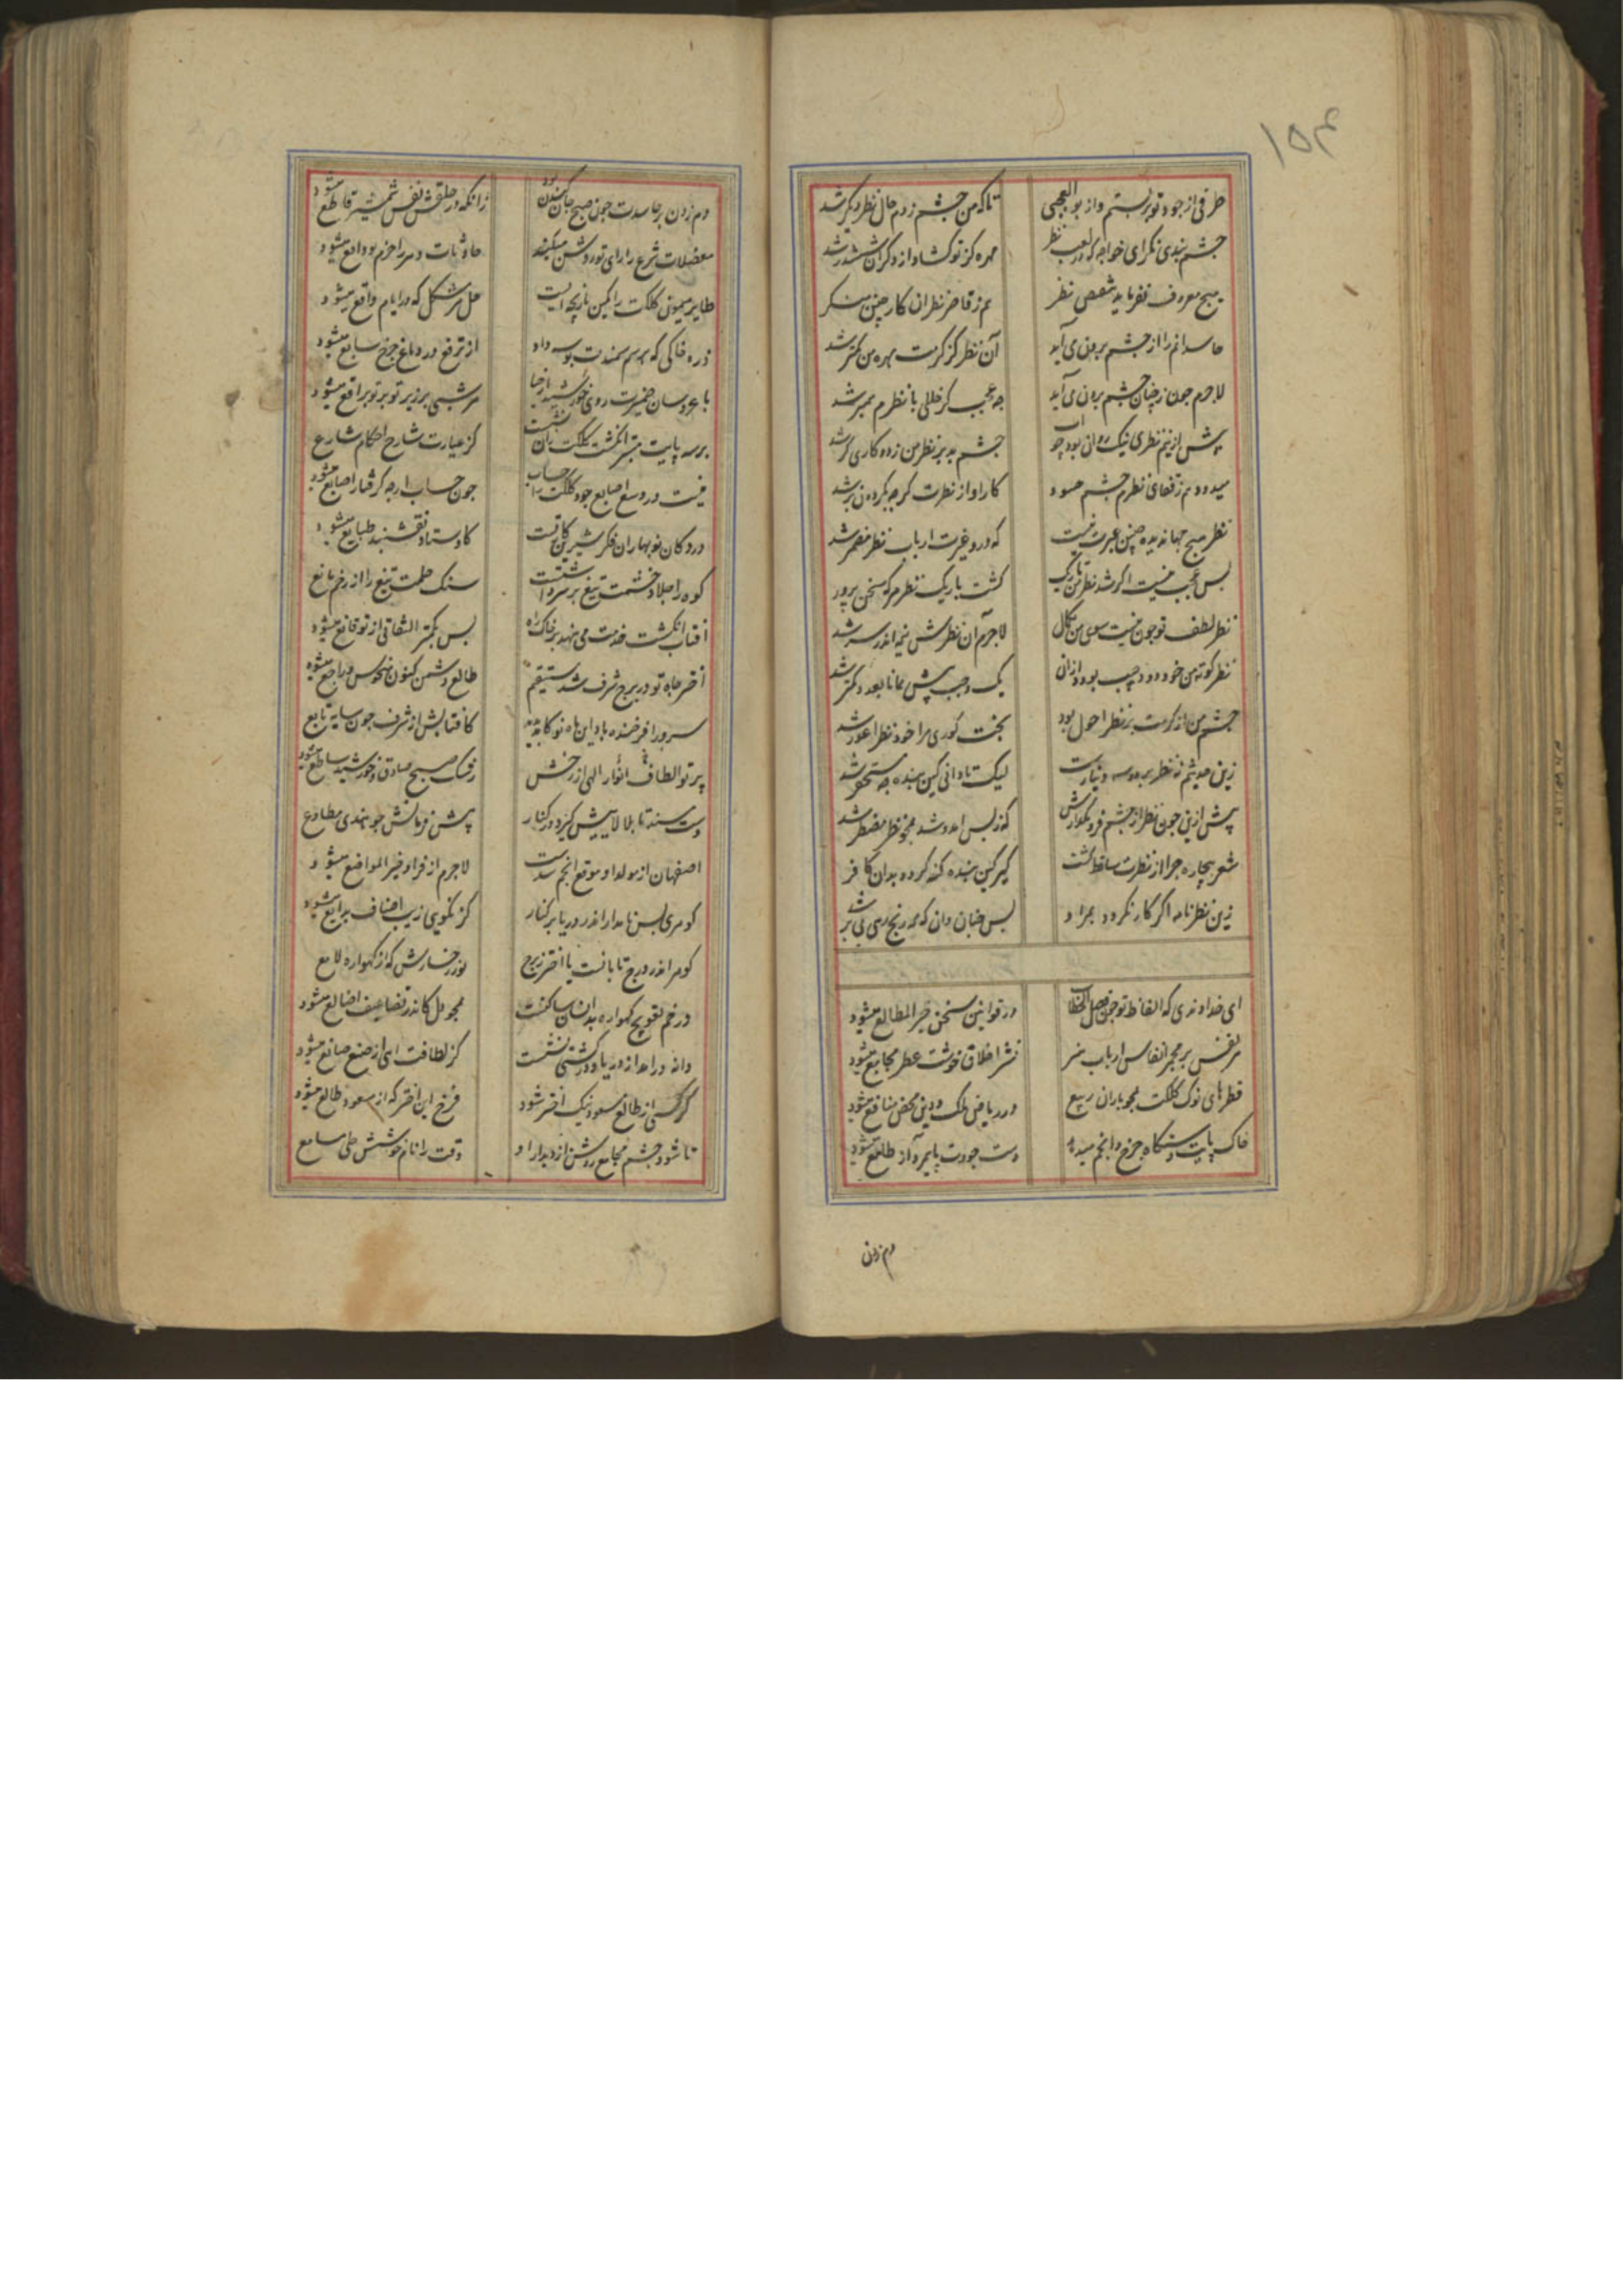 ۱۵۴
طرفی از جود تو بر بستم و از بوالعجبی تا که من چشم زدم حال نظر دیگر شد
چشم بندی نگر ای خواجه که در لعب نظر مهره کز تو گشاد از دگران ششدر شد
هیچ معروف نفرماید نقص نظر هم ز قاصر نظران کار چنین منکر شد
حاسدانم را از چشم برون می آید آن نظر کز کرمت بهره من کمتر شد
لاجرم چون ز چنان چشم برون می آید چه عجب کر خللی با نظرم همبر شد
پیش ازینم نظری نیک روان بود چو آب چشم بد بر نظر من زد و کاری گر شد
میدود هم ز قفای نظرم چشم حسود کار او از نظرت گرچه بگردون بر شد
نظر هیچ جهاندیده چنین عبرت نیست که درو غیرت ارباب نظر مضمر شد
بس عجب نیست اگر شد نظر من تاریک گشت باریک نظر هر که سخن پرور شد
نظر لطف تو چون نیست سوی من بکمال لاجرم آن نظرش نیمه اندر سر شد
نظر کوته من خود دو وجب بود از آن یک وجب پیش بمانا بعد و کمتر شد
چشم من از کرمت بر نظر احول بود بخت کوری مرا خود نظر اعور شد
زین حدیثم نه نظر بر بدسه دینارست لیک تا دانی کین بنده چه مستحقر شد
پیش ازین چون نظر از چشم فرو مگذارش که ز بس آمد و شد همچو نظر مضطر شد
شعر بیچاره چرا از نظرت ساقط گشت گیر کین بنده گنه کرد و بدان کافر شد
زین نظر نامه اگر کار نگردد بمراد بس چنان دان که همه رنج رهی بی بر شد
ای خداوندی که الفاظ تو چون فصل الخطاب در قوانین سخن خیر المطالع میشود
هر نفس بر مجمر انفاس ارباب هنر نشر اخلاق خوشت عطر مجامع میشود
قطرهای نوک کلکت همچو باران ربیع در ریاض ملک و دین محض منافع میشود
خاک پایت دستگاه چرخ و انجم میدهد دست جودت پایمرد آز طامع میشود
دم زدن
دم زدن بر حاسدت چون صبح جان کندن بود زانکه در حلقش نفس شمشیر قاطع میشود
معضلات شرع را رای تو روشن میکند حادثات دهر را حزم تو دافع میشود
طایر میمون کلکت را کمین بازیچه ایست حل هر مشکل که در ایام واقع میشود
ذره خاکی که بر سم سمندت بوسه داد از ترفع در دماغ چرخ سابع میشود
با عروسان ضمیرت روی خورشید از حیا هر شبی بر زیر تو بر تو براقع میشود
بر سه پایت بیشتر انگشت کلکت زان نشست کز عبارت شارح احکام شارع
نیست در وسع اصابع جود کلکت را حساب چون حساب ارچه گرفتار اصابع میشود
در دکان نوبهاران فکر شیرین کار تست کاوستاد نقشبند طبایع میشود
کوه را جلاد خشمت تیغ بر سر داشتست سنگ حلمت تیغ را از زخم مانع
آفتاب انگشت خدمت می نهد بر خاک راه بس بکمتر التفاتی از تو قانع میشود
اختر جاه تو در برج شرف شد مستقیم طالع دشمن کنون منحوس و راجع میشود
سرورا فرخنده باد این ماه نو کابد پدید کافتابش از شرف چون سایه تابع
پرتو الطاف انوار الهی از رخش رشک صبح صادق و خورشید ساطع میشود
دست بسته تا بلالاییش گیرد در کنار پیش فرمانش چو هندی مطاوع
اصفهان از مولد او موقع انجم شدست لاجرم از فر او خیر المواضع میشود
گوهری بس نامدار اندر دریا بر کنار کز نکویی زیب اصناف بدایع میشود
گوهر اندر درج تابانست یا اختر ز برج نور رخسارش که از گهواره لامع
در خم تقویج گهواره بدانسان ساکنست همچو دل کاندر تضاعیف اضالع میشود
دانه در آمد از دریا و در کشتی نشست کز لطافت ای از صنع صانع میشود
گر کسی از طالع مسعود نیک اختر شود فرخ این اختر که از مسعود طالع میشود
تا شود چشم مجامع روشن از دیدار او وقت را نام خوشش حلی مسامع